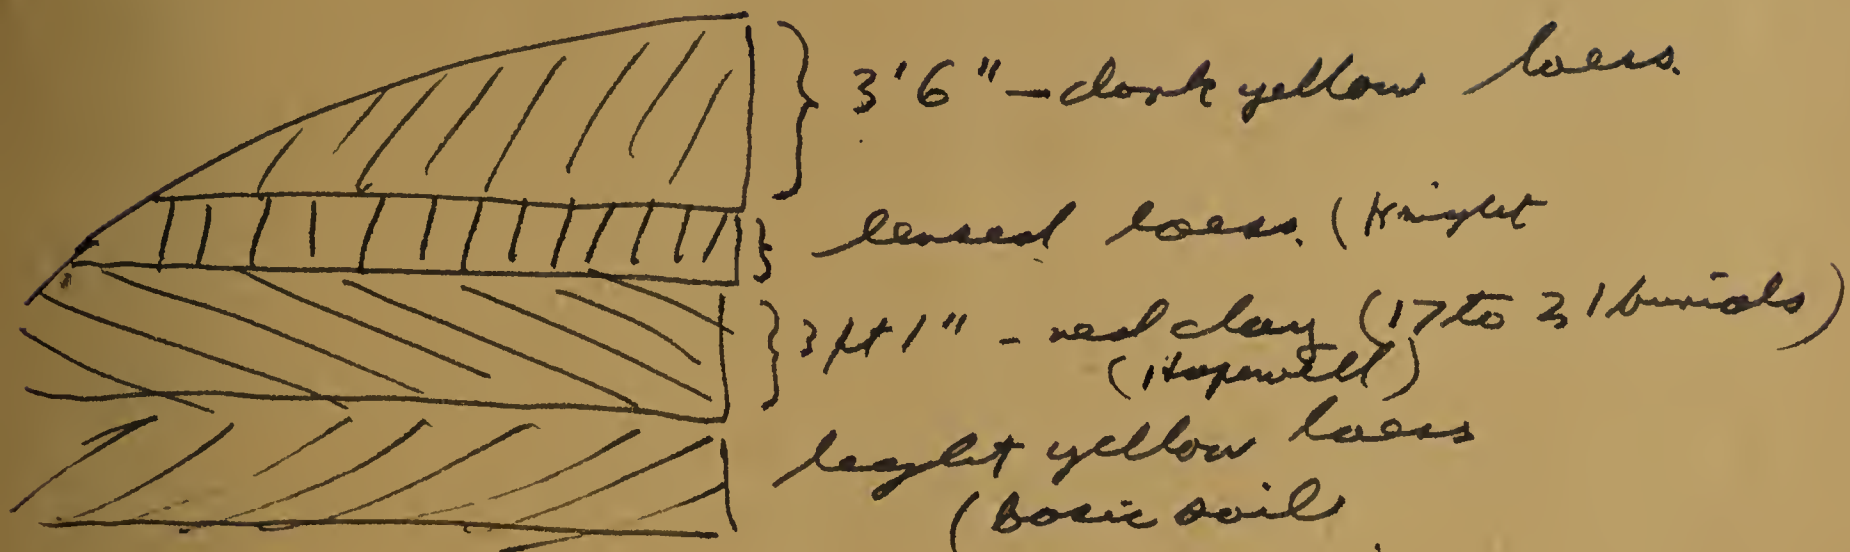 3'6" - dark yellow loess.
lensed loess. (Knight
3 ft 1" - red clay (17 to 21 burials)
(Hopewell)
leight yellow loess
(Basic soil